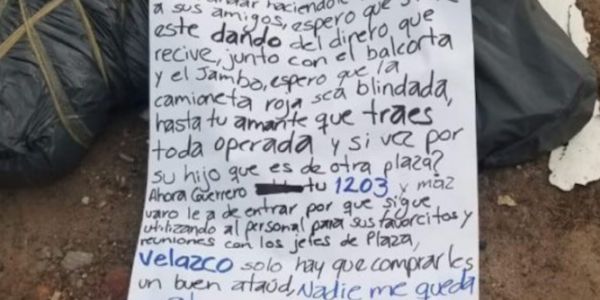 haciendole
a sus amigos, espero que
este dando del direro que
recive, junto con el balcorta
y el Jamba, espero que la
camioneta roja sea blindada,
hasta tu amante que traes
toda operada y si vez por
su hijo que es de otra plaza?
Ahora Guerrero tu 1203 y maz
varo le a de entrar por que sigue
utilizando al personal para sus favorcitos y
reuniones con los jefes de Plaza,
Velazco solo hay que comprarles
un buen ataúd, Nadie me queda